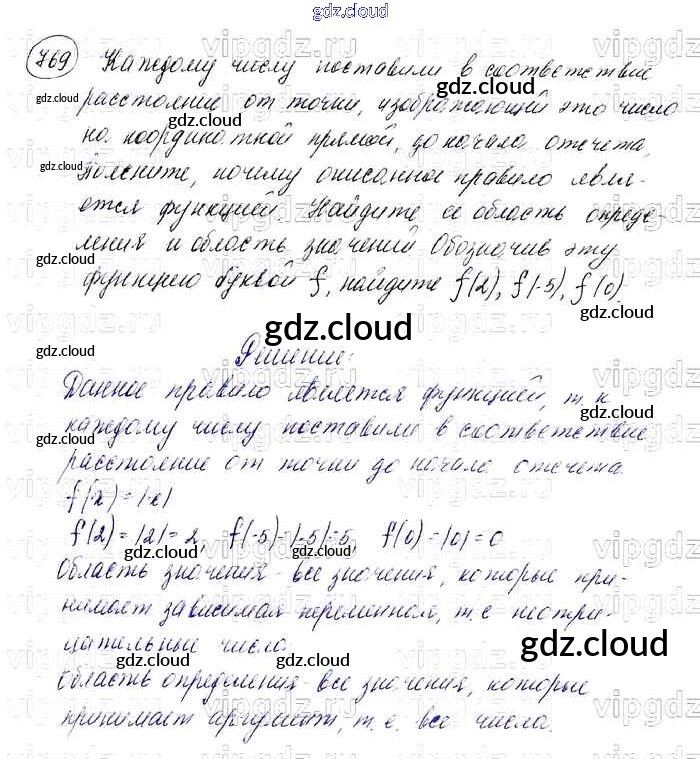 gdz.cloud
769 Каждому числу поставили в соответствие
расстояние от точки, изображающей это число
на координатной прямой, до начала отсчета.
Поясните, почему описанное правило явля-
ется функцией. Найдите ее область опреде-
ления и область значений. Обозначив эту
функцию буквой f, найдите f(2), f(-5), f(0).
Решение:
Данное правило является функцией, т. к
каждому числу поставили в соответствие
расстояние от точки до начала отсчета.
f(x) = |x|
f(2) = |2| = 2, f(-5) = |-5| = 5, f(0) = |0| = 0
Область значения - все значения, которые при-
нимает зависимая переменная, т.е неотри-
цательные числа.
Область определения - все значения, которые
принимает аргумент, т.е. все числа.